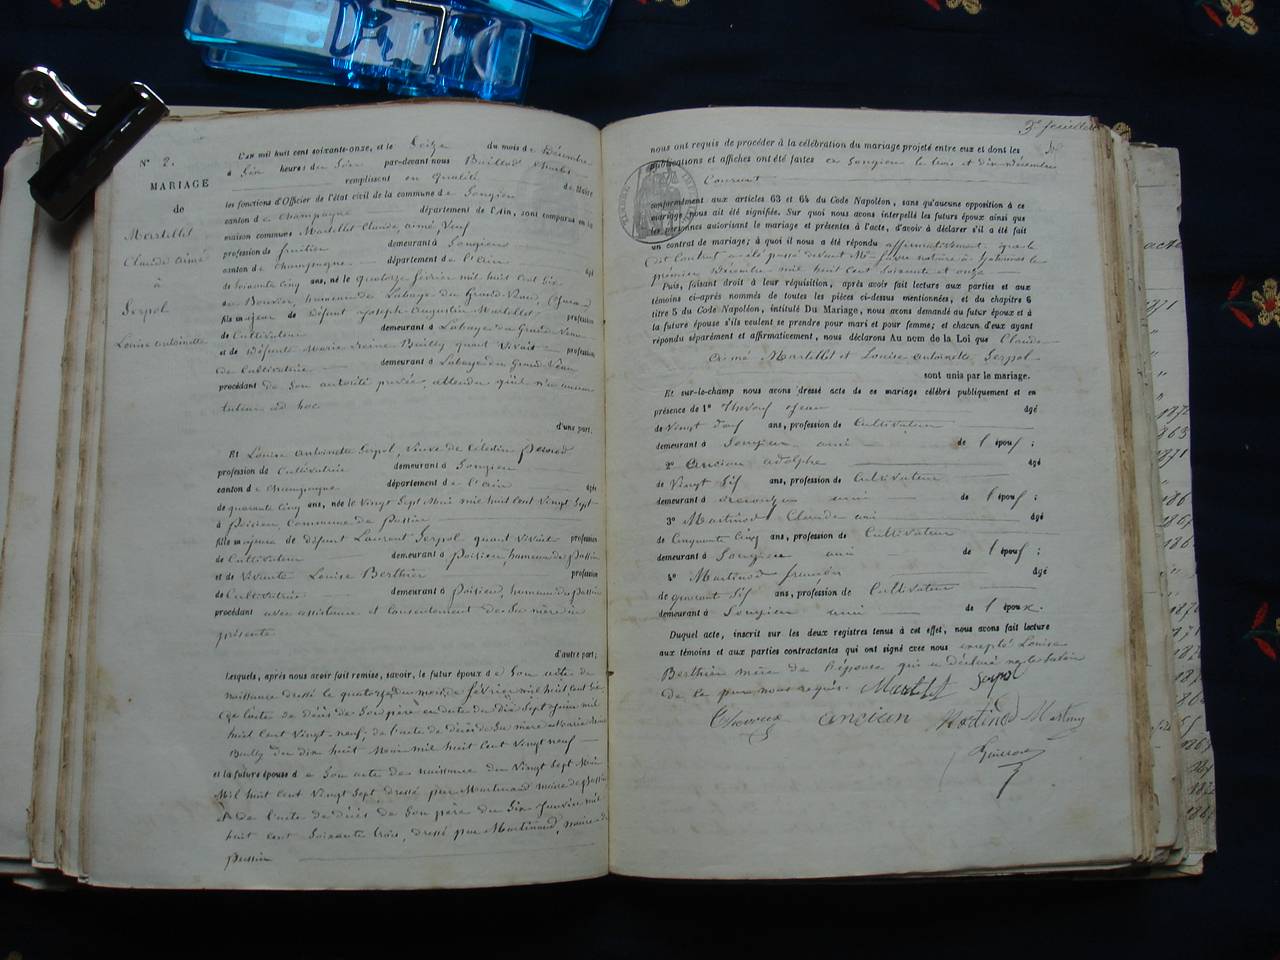 N° 2.
MARIAGE
de
Martellet
Claude aimé
à
Serpol
Louise antoinette
L'an mil huit cent soixante-onze, et le Seize du mois de Décembre
à Six heures du Soir par-devant nous
remplissant en qualité de Maire
les fonctions d'Officier de l'état civil de la commune de Songieu
canton de Champagne département de l'Ain, sont comparus en la
maison commune Martellet Claude, aimé, Veuf
profession de fruitier demeurant à Songieu
canton de Champagne département de l'Ain âgé
de Soixante Cinq ans, né le quatorze février mil huit cent Six
hameau de Labaye du Grand Vaux, (Jura)
fils majeur de Défunt Joseph Augustin Martellet profession
de Cultivateur demeurant à Labaye du Grand Vaux
et de Défunte Marie Reine Bailly quant Vivait profession
de Cultivatrice demeurant à Labaye du Grand Vaux
procédant de Son autorité privée, attendu qu'il n'a aucun
tuteur ad hoc
d'une part;
Et Louise Antoinette Serpol, Veuve de Célestin
profession de Cultivatrice demeurant à Songieu
canton de Champagne département de l'Ain âgée
de quarante Cinq ans, née le Vingt Sept Mai mil huit Cent Vingt Sept
à Poisieu Commune de Passin
fille majeure de défunt Laurent Serpol quant Vivait profession
de Cultivateur demeurant à Poisieu, hameau de Passin
et de Vivante Louise Berthier profession
de Cultivatrice demeurant à Poisieu, hameau de Passin
procédant avec assistance et Consentement de Sa mère ici
présente
d'autre part;
Lesquels, après nous avoir fait remise, savoir, le futur époux de Son acte de
naissance dressé le quatorze du mois de février mil huit cent Six
de l'acte de décès de Son père en date du dix Sept mil
huit cent Vingt-neuf, de l'acte de décès de Sa mère Marie Reine
Bailly du dix huit mil huit Cent Vingt neuf
et la future épouse de Son acte de naissance du Vingt Sept Mai
Mil huit Cent Vingt Sept dressé par Martinand maire de Passin
de l'acte de décès de Son père du Six Janvier mil
huit cent Soixante trois, dressé par Martinand, maire de
Passin
3e feuillet
nous ont requis de procéder à la célébration du mariage projeté entre eux et dont les
publications et affiches ont été faites en Songieu le trois et dix Décembre
Courant
conformément aux articles 63 et 64 du Code Napoléon, sans qu'aucune opposition à ce
mariage nous ait été signifiée. Sur quoi nous avons interpellé les futurs époux ainsi que
les personnes autorisant le mariage et présentes à l'acte, d'avoir à déclarer s'il a été fait
un contrat de mariage; à quoi il nous a été répondu affirmativement, que le
dit Contrat a été passé devant Me notaire à le
premier Décembre mil huit Cent Soixante et onze
Puis, faisant droit à leur réquisition, après avoir fait lecture aux parties et aux
témoins ci-après nommés de toutes les pièces ci-dessus mentionnées, et du chapitre 6
titre 5 du Code Napoléon, intitulé Du Mariage, nous avons demandé au futur époux et à
la future épouse s'ils veulent se prendre pour mari et pour femme; et chacun d'eux ayant
répondu séparément et affirmativement, nous déclarons Au nom de la Loi que Claude
Aimé Martellet et Louise antoinette Serpol
sont unis par le mariage.
Et sur-le-champ nous avons dressé acte de ce mariage célébré publiquement et en
présence de 1° âgé
de Vingt neuf ans, profession de Cultivateur
demeurant à Songieu ami de l'époux;
2° Ancian adolphe âgé
de Vingt Six ans, profession de Cultivateur
demeurant à ami de l'époux;
3° Martinod Claude ami âgé
de Cinquante Cinq ans, profession de Cultivateur
demeurant à Songieu ami de l'époux;
4° Martinod francois âgé
de quarante Six ans, profession de Cultivateur
demeurant à Songieu ami de l'époux.
Duquel acte, inscrit sur les deux registres tenus à cet effet, nous avons fait lecture
aux témoins et aux parties contractantes qui ont signé avec nous excepté Louise
Berthier mère de l'épouse qui a déclaré ne le Savoir
de ce par nous requis. Martellet Serpol
ancian Martinod